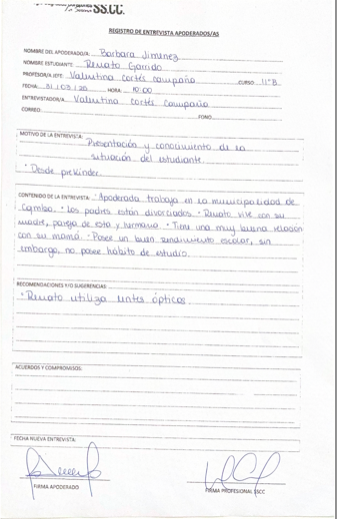 SS.CC.
REGISTRO DE ENTREVISTA APODERADOS/AS
NOMBRE DEL APODERADO/A: Barbara Jimenez
NOMBRE ESTUDIANTE: Renato Garrido
PROFESOR/A JEFE: Valentina Cortés Campaña CURSO II°B
FECHA: 31/03/20 HORA 10:00
ENTREVISTADOR/A: Valentina Cortés Campaña
CORREO: FONO
MOTIVO DE LA ENTREVISTA: Presentación y conocimiento de la
situación del estudiante.
• Desde prekinder.
CONTENIDO DE LA ENTREVISTA: • Apoderada trabaja en la municipalidad de
• Los padres están divorciados. • Renato vive con su
madre, pareja de esta y hermana. • Tiene una muy buena relación
con su mamá. • Posee un buen rendimiento escolar, sin
embargo, no posee hábito de estudio.
RECOMENDACIONES Y/O SUGERENCIAS
• Renato utiliza lentes ópticos.
ACUERDOS Y COMPROMISOS:
FECHA NUEVA ENTREVISTA:
FIRMA APODERADO FIRMA PROFESIONAL SSCC